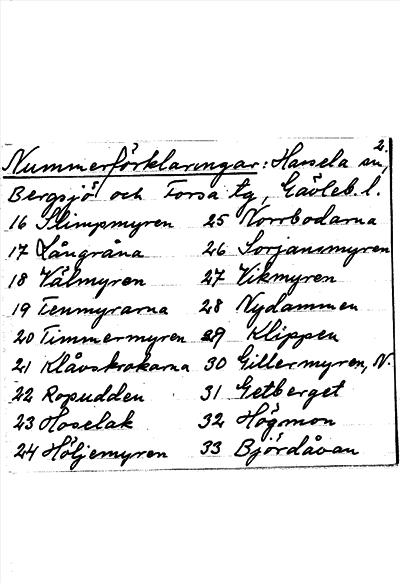 2.
Nummerförklaringar: Hassela sn,
Bergsjö och Forsa tg, Gävleb. l.
16 Slimpmyren 25 Norrbodarna
17 Långråna 26 Sorjansmyren
18 Välmyren 27 Vikmyren
19 Tenmyrarna 28 Nydammen
20 Timmermyren 29 Klippen
21 Klåvskrokarna 30 Gillermyren, N.
22 Ropudden 31 Getberget
23 Hoselak 32 Högmon
24 Höljemyren 33 Björdåvan